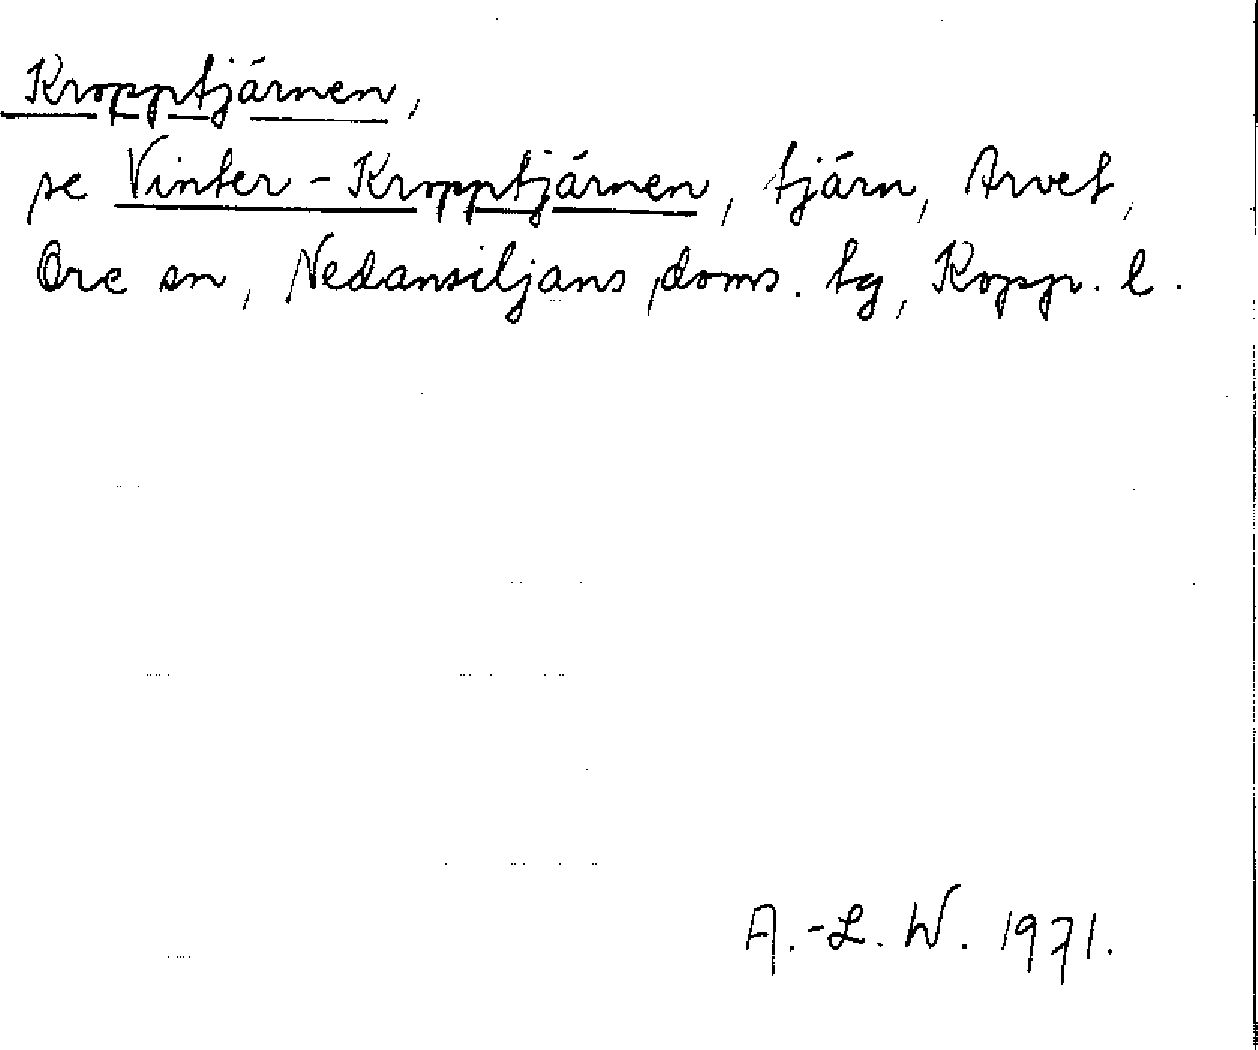 Kropptjärnen,
se Vinter-Kropptjärnen, tjärn, Arvet,
Ore sn, Nedansiljans doms. tg, Kopp. l.
A.-L. W. 1971.